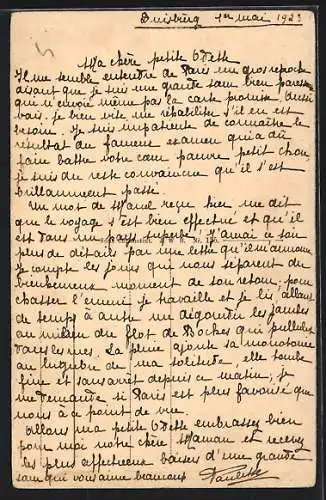 Duisburg 1er mai 1923
Ma chère petite Odette
Il me semble entendre de Paris un gros reproche
disant que je suis une grande sœur bien paresseuse
qui n'envoie même pas la carte promise, aussi
vais-je bien vite me réhabiliter s'il en est
besoin. Je suis impatiente de connaître le
résultat du fameux examen qui a dû
faire battre votre cœur pauvre petit chou,
je suis du reste convaincue qu'il s'est
brillamment passé.
Un mot de Marcel reçu hier me dit
que le voyage s'est bien effectué et qu'il
est dans une superbe. J'aurai ce soir
plus de détails par une lettre qu'il m'annonce
Je compte les jours qui nous séparent du
bienheureux moment de son retour, pour
chasser l'ennui je travaille et je lis, allant
de temps à autre me dégourdir les jambes
au milieu du flot de Boches qui pullulent
dans les rues. La pluie ajoute sa monotonie
au lugubre de ma solitude, elle tombe
fine et sans arrêt depuis ce matin; je
me demande si Paris est plus favorisé que
nous à ce point de vue.
Allons ma petite Odette embrassez bien
pour moi notre chère Maman et recevez
les plus affectueux baisers d'une grande
sœur qui vous aime beaucoup Paulette